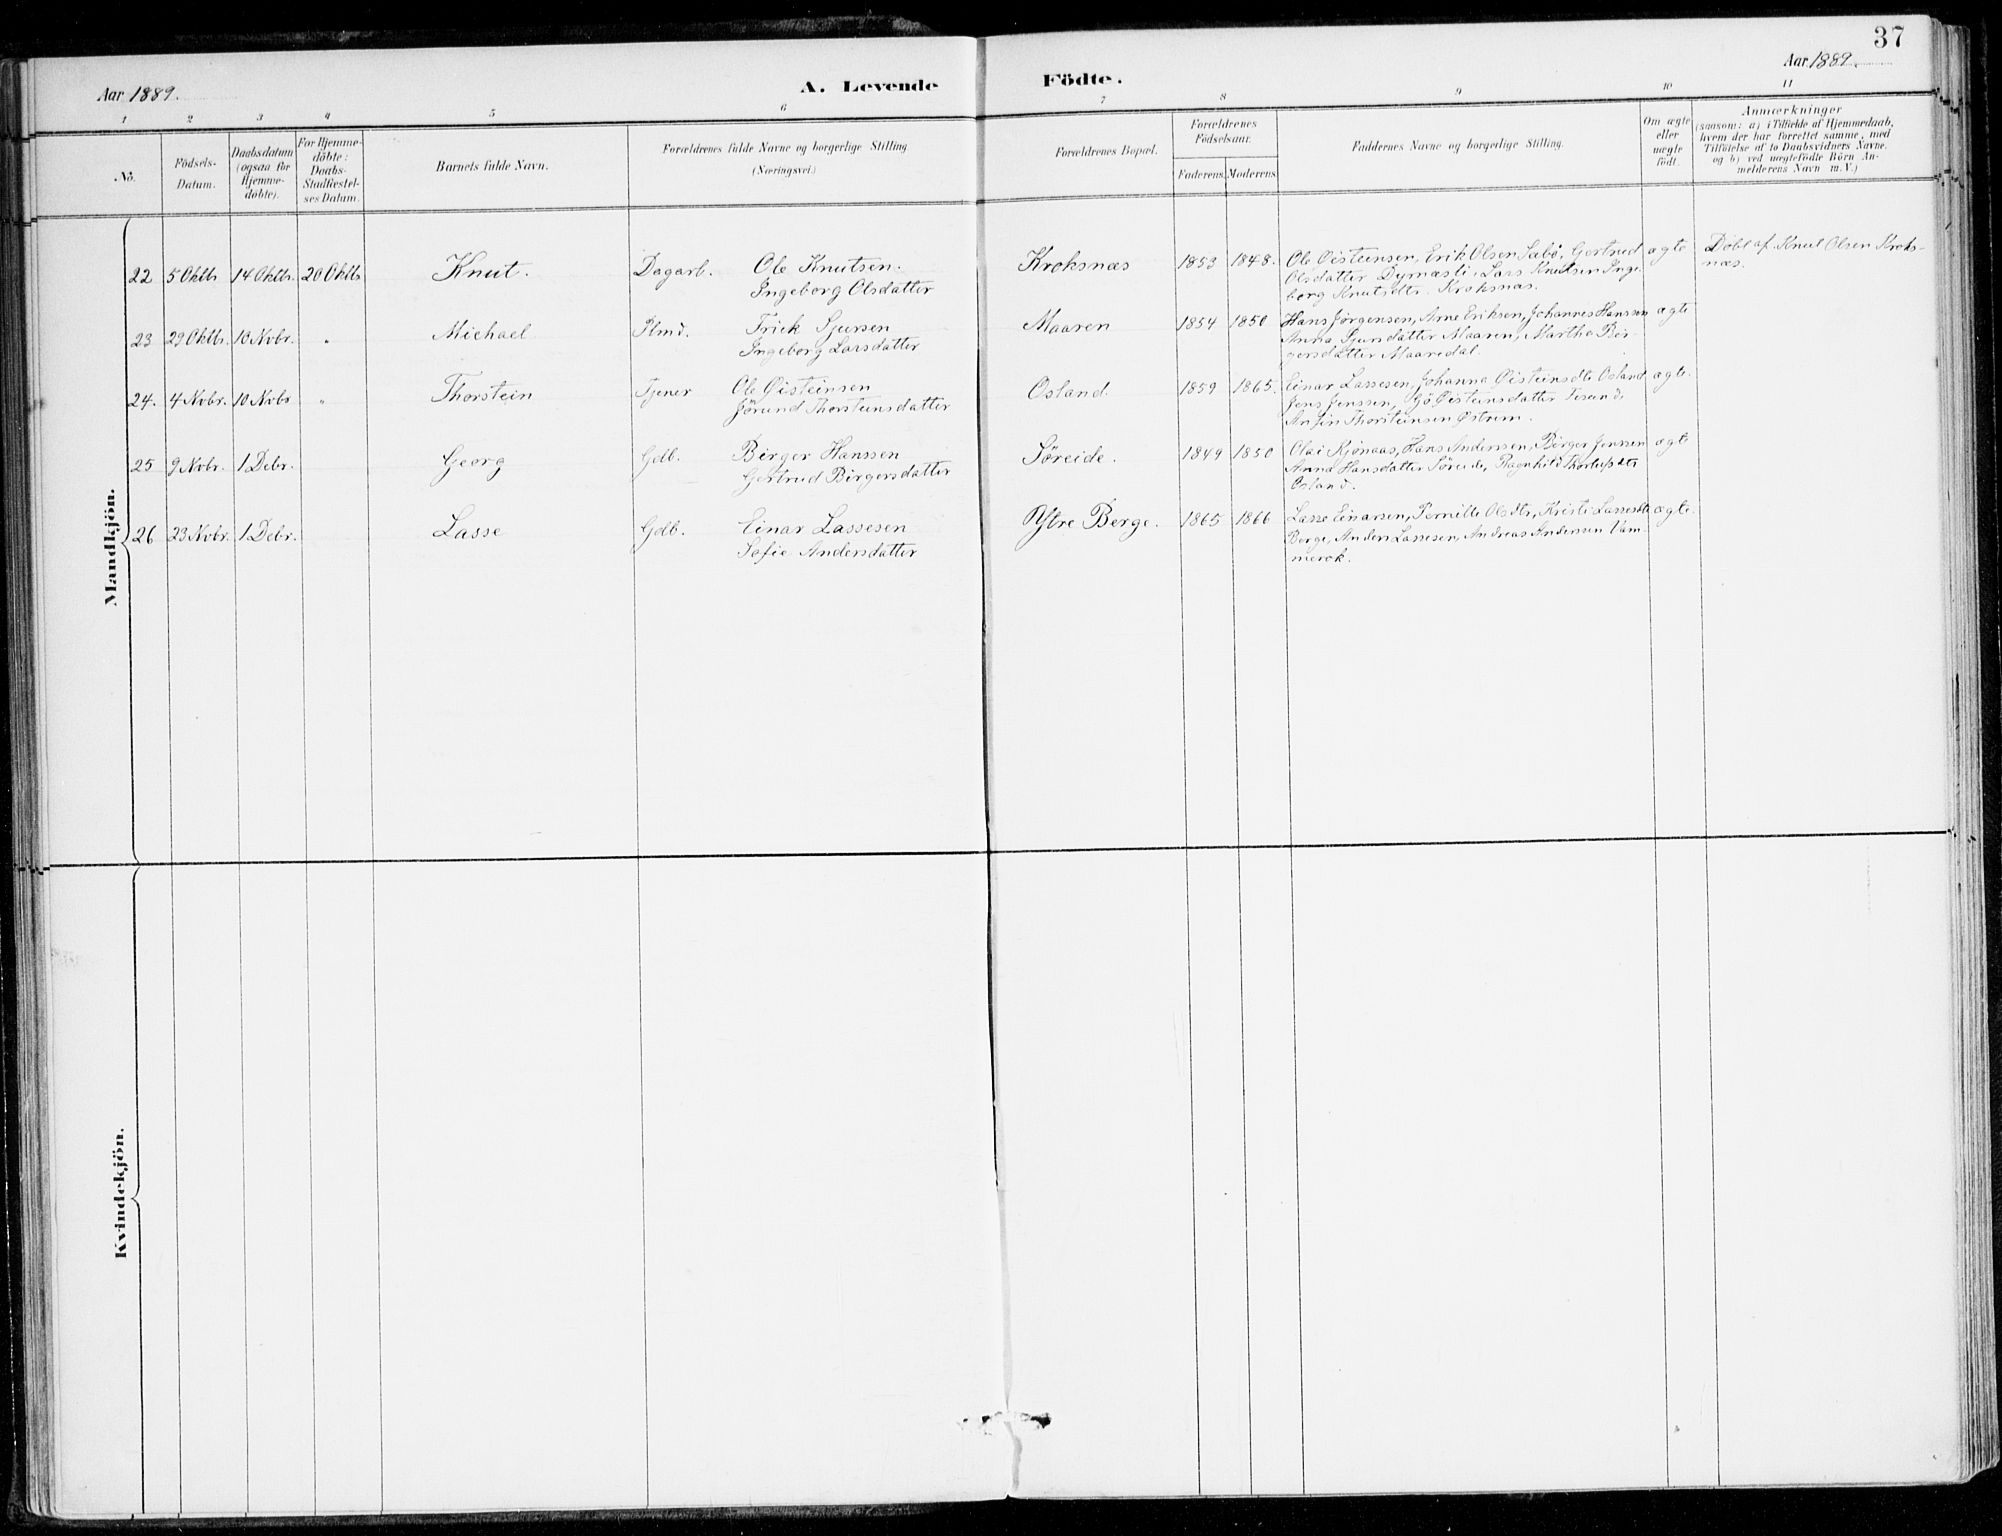 37
Aar 1889.
A. Levende Födte.
Aar 1889.
1 2 3 4 5 6 7 8 9 10 11
No.
Födsels-
Datum.
Daabsdatum
(ogsaa for
Hjemme-
döbte).
For Hjemme-
döbte:
Daabs-
Stadfæstel-
ses Datum.
Barnets fulde Navn.
Forældrenes fulde Navne og borgerlige Stilling
(Næringsvei.)
Forældrenes Bopæl.
Forældrenes
Födselsaar.
Faderens. Moderens.
Faddernes Navne og borgerlige Stilling.
Om ægte
eller
uægte
födt.
Anmærkninger
(saasom: a) i Tilfælde af Hjemmedaab,
hvem der har forrettet samme, med
Tilföielse af to Daabsvidners Navne.
og b) ved uægtefödte Börn An-
melderens Navn m. V.)
Mandkjön.
22 5 Oktb. 14 Oktb. 20 Oktb. Knut. Dagarb. Ole Knutsen.
Ingeborg Olsdatter
Kroksnæs 1853 1848.
Ole Øisteinsen, Erik Olsen Sabø, Gertrud
Olsdatter Dymæsli, Lars Knutsen Inge-
borg Knutsdtr. Kroksnæs.
ægte
Döbt af Knut Olsen Kroks-
næs.
23 29 Oktb. 10 Nvbr. " Michael Plmd. Erick Sjursen
Ingeborg Larsdatter
Maaren 1854 1850
Hans Jørgensen, Arne Eriksen, Johannes Hanssen
Anna Sjursdatter Maaren, Martha Bir-
gersdatter Maaredal.
ægte
24. 4 Nvbr. 10 Nvbr " Thorstein Tjener Ole Øisteinsen
Jörund Thorsteinsdatter
Osland. 1859 1865.
Einar Lassesen, Johanna Øisteinsdtr Osland
Jens Jenssen, Øisteinsdatter
Anfin Thorsteinsen Østrem.
ægte.
25 9 Nvbr. 1 Debr. Georg Gdb. Birger Hanssen
Gertrud Birgersdatter
Søreide. 1849 1850
Olai Kjönaas, Hans Anderssen, Birger Jenssen
Anna Hansdatter Søreide, Ragnhild
Osland.
ægte
26 23 Nvbr. 1 Debr. Lasse Gdb. Einar Lassesen
Sofie Andersdatter
Ytre Berge. 1865 1866
Lasse Einarsen, Pernille Olsdtr, Kristi Lassesdtr
Berge, Anders Lassesen, Andreas Andersen Vam-
merok.
ægte.
Kvindekjön.